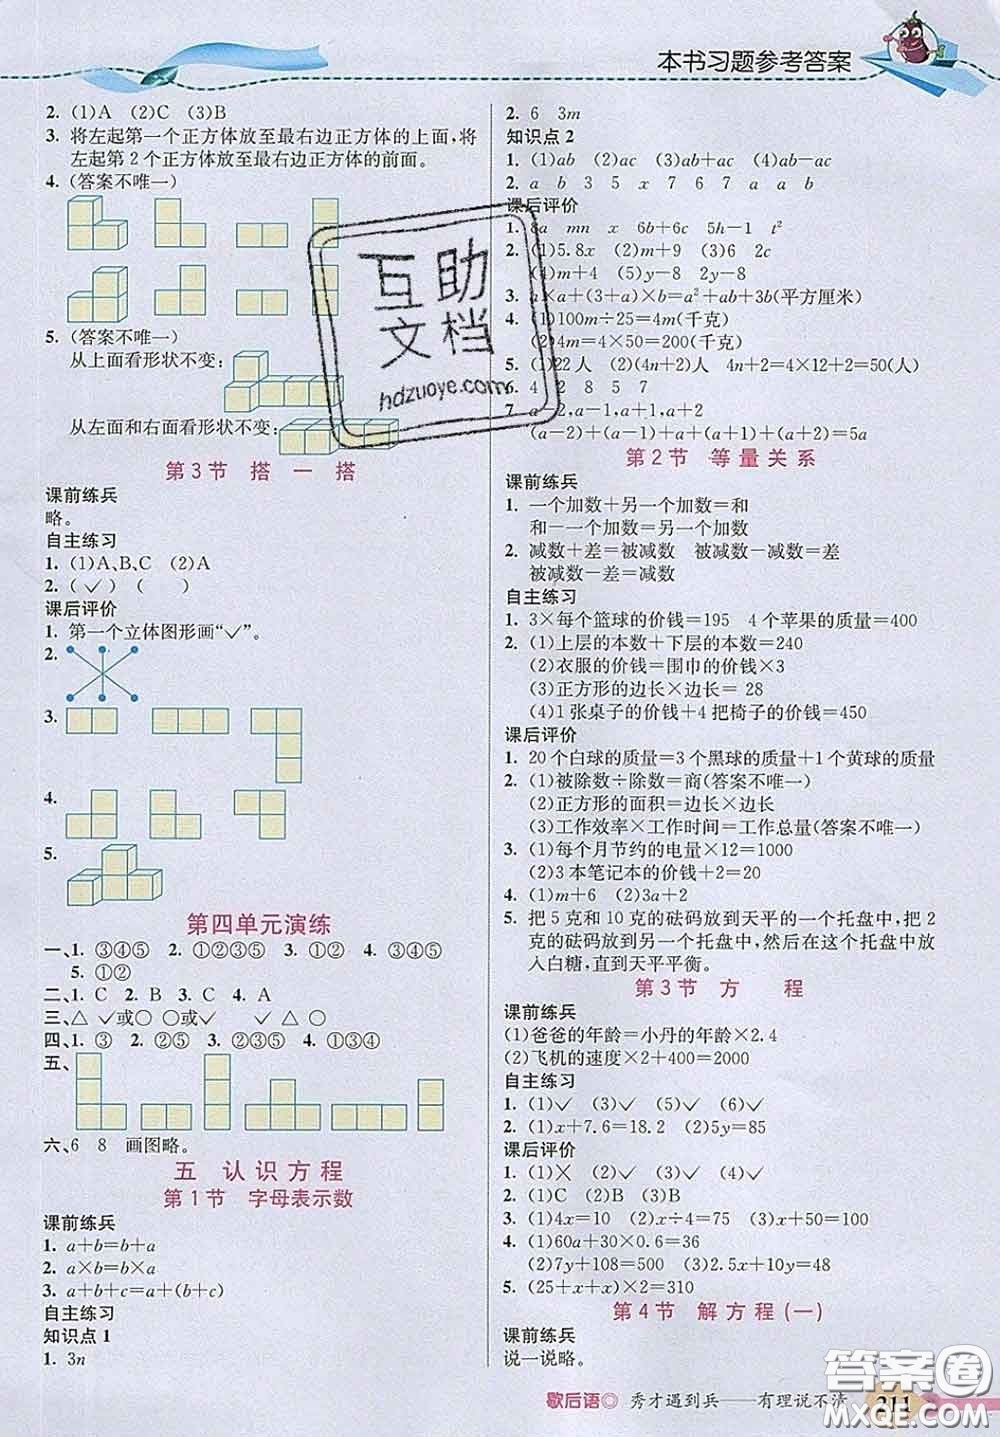 本书习题参考答案
2. (1)A (2)C (3)B
3. 将左起第一个正方体放至最右边正方体的上面,将
左起第 2 个正方体放至最右边正方体的前面。
4. (答案不唯一)
5. (答案不唯一)
从上面看形状不变:
从左面和右面看形状不变:
第 3 节 搭 一 搭
课前练兵
略。
自主练习
1. (1)A、B、C (2)A
2. (✓) ( )
课后评价
1. 第一个立体图形画“✓”。
2.
3.
4.
5.
第四单元演练
一、1. ③④⑤ 2. ①②③⑤ 3. ①② 4. ①③④⑤
5. ①②
二、1. C 2. B 3. C 4. A
三、△ ✓或○ ○或✓ ✓ △ ○
四、1. ③ 2. ②⑤ 3. ①②⑤ 4. ①③④
五、
六、6 8 画图略。
五 认识方程
第 1 节 字母表示数
课前练兵
1. a+b=b+a
2. a×b=b×a
3. a+b+c=a+(b+c)
自主练习
知识点 1
1. 3n
2. 6 3m
知识点 2
1. (1)ab (2)ac (3)ab+ac (4)ab-ac
2. a b 3 5 x 7 6 7 a a b
课后评价
1. 8a mn x 6b+6c 5h-1 t²
2. (1)5.8x (2)m+9 (3)6 2c
(4)m+4 (5)y-8 2y-8
3. a×a+(3+a)×b=a²+ab+3b(平方厘米)
4. (1)100m÷25=4m(千克)
(2)4m=4×50=200(千克)
5. (1)22 人 (2)(4n+2)人 4n+2=4×12+2=50(人)
6. 4 2 8 5 7
7. a-2,a-1,a+1,a+2
(a-2)+(a-1)+a+(a+1)+(a+2)=5a
第 2 节 等量关系
课前练兵
1. 一个加数+另一个加数=和
和-一个加数=另一个加数
2. 减数+差=被减数 被减数-减数=差
被减数-差=减数
自主练习
1. 3×每个篮球的价钱=195 4 个苹果的质量=400
2. (1)上层的本数+下层的本数=240
(2)衣服的价钱=围巾的价钱×3
(3)正方形的边长×边长= 28
(4)1 张桌子的价钱+4 把椅子的价钱=450
课后评价
1. 20 个白球的质量=3 个黑球的质量+1 个黄球的质量
2. (1)被除数÷除数=商(答案不唯一)
(2)正方形的面积=边长×边长
(3)工作效率×工作时间=工作总量(答案不唯一)
3. (1)每个月节约的电量×12=1000
(2)3 本笔记本的价钱+2=20
4. (1)m+6 (2)3a+2
5. 把 5 克和 10 克的砝码放到天平的一个托盘中,把 2
克的砝码放到另一个托盘中,然后在这个托盘中放
入白糖,直到天平平衡。
第 3 节 方 程
课前练兵
(1)爸爸的年龄=小丹的年龄×2.4
(2)飞机的速度×2+400=2000
自主练习
1. (1)✓ (3)✓ (5)✓ (6)✓
2. (1)x+7.6=18.2 (2)5y=85
课后评价
1. (1)╳ (2)✓ (3)✓ (4)✓
2. (1)C (2)B (3)D (4)B
3. (1)4x=10 (2)x÷4=75 (3)2x=150
4. (1)60a+30×0.6=36
(2)7y+108=500 (3)2x+10=48
5. (25+x+x)×2=310
第 4 节 解方程(一)
课前练兵
说一说略。
歇后语◎ 秀才遇到兵——有理说不清
211
互助
文档
hdzuoye.com
答案圈
MXQE.COM